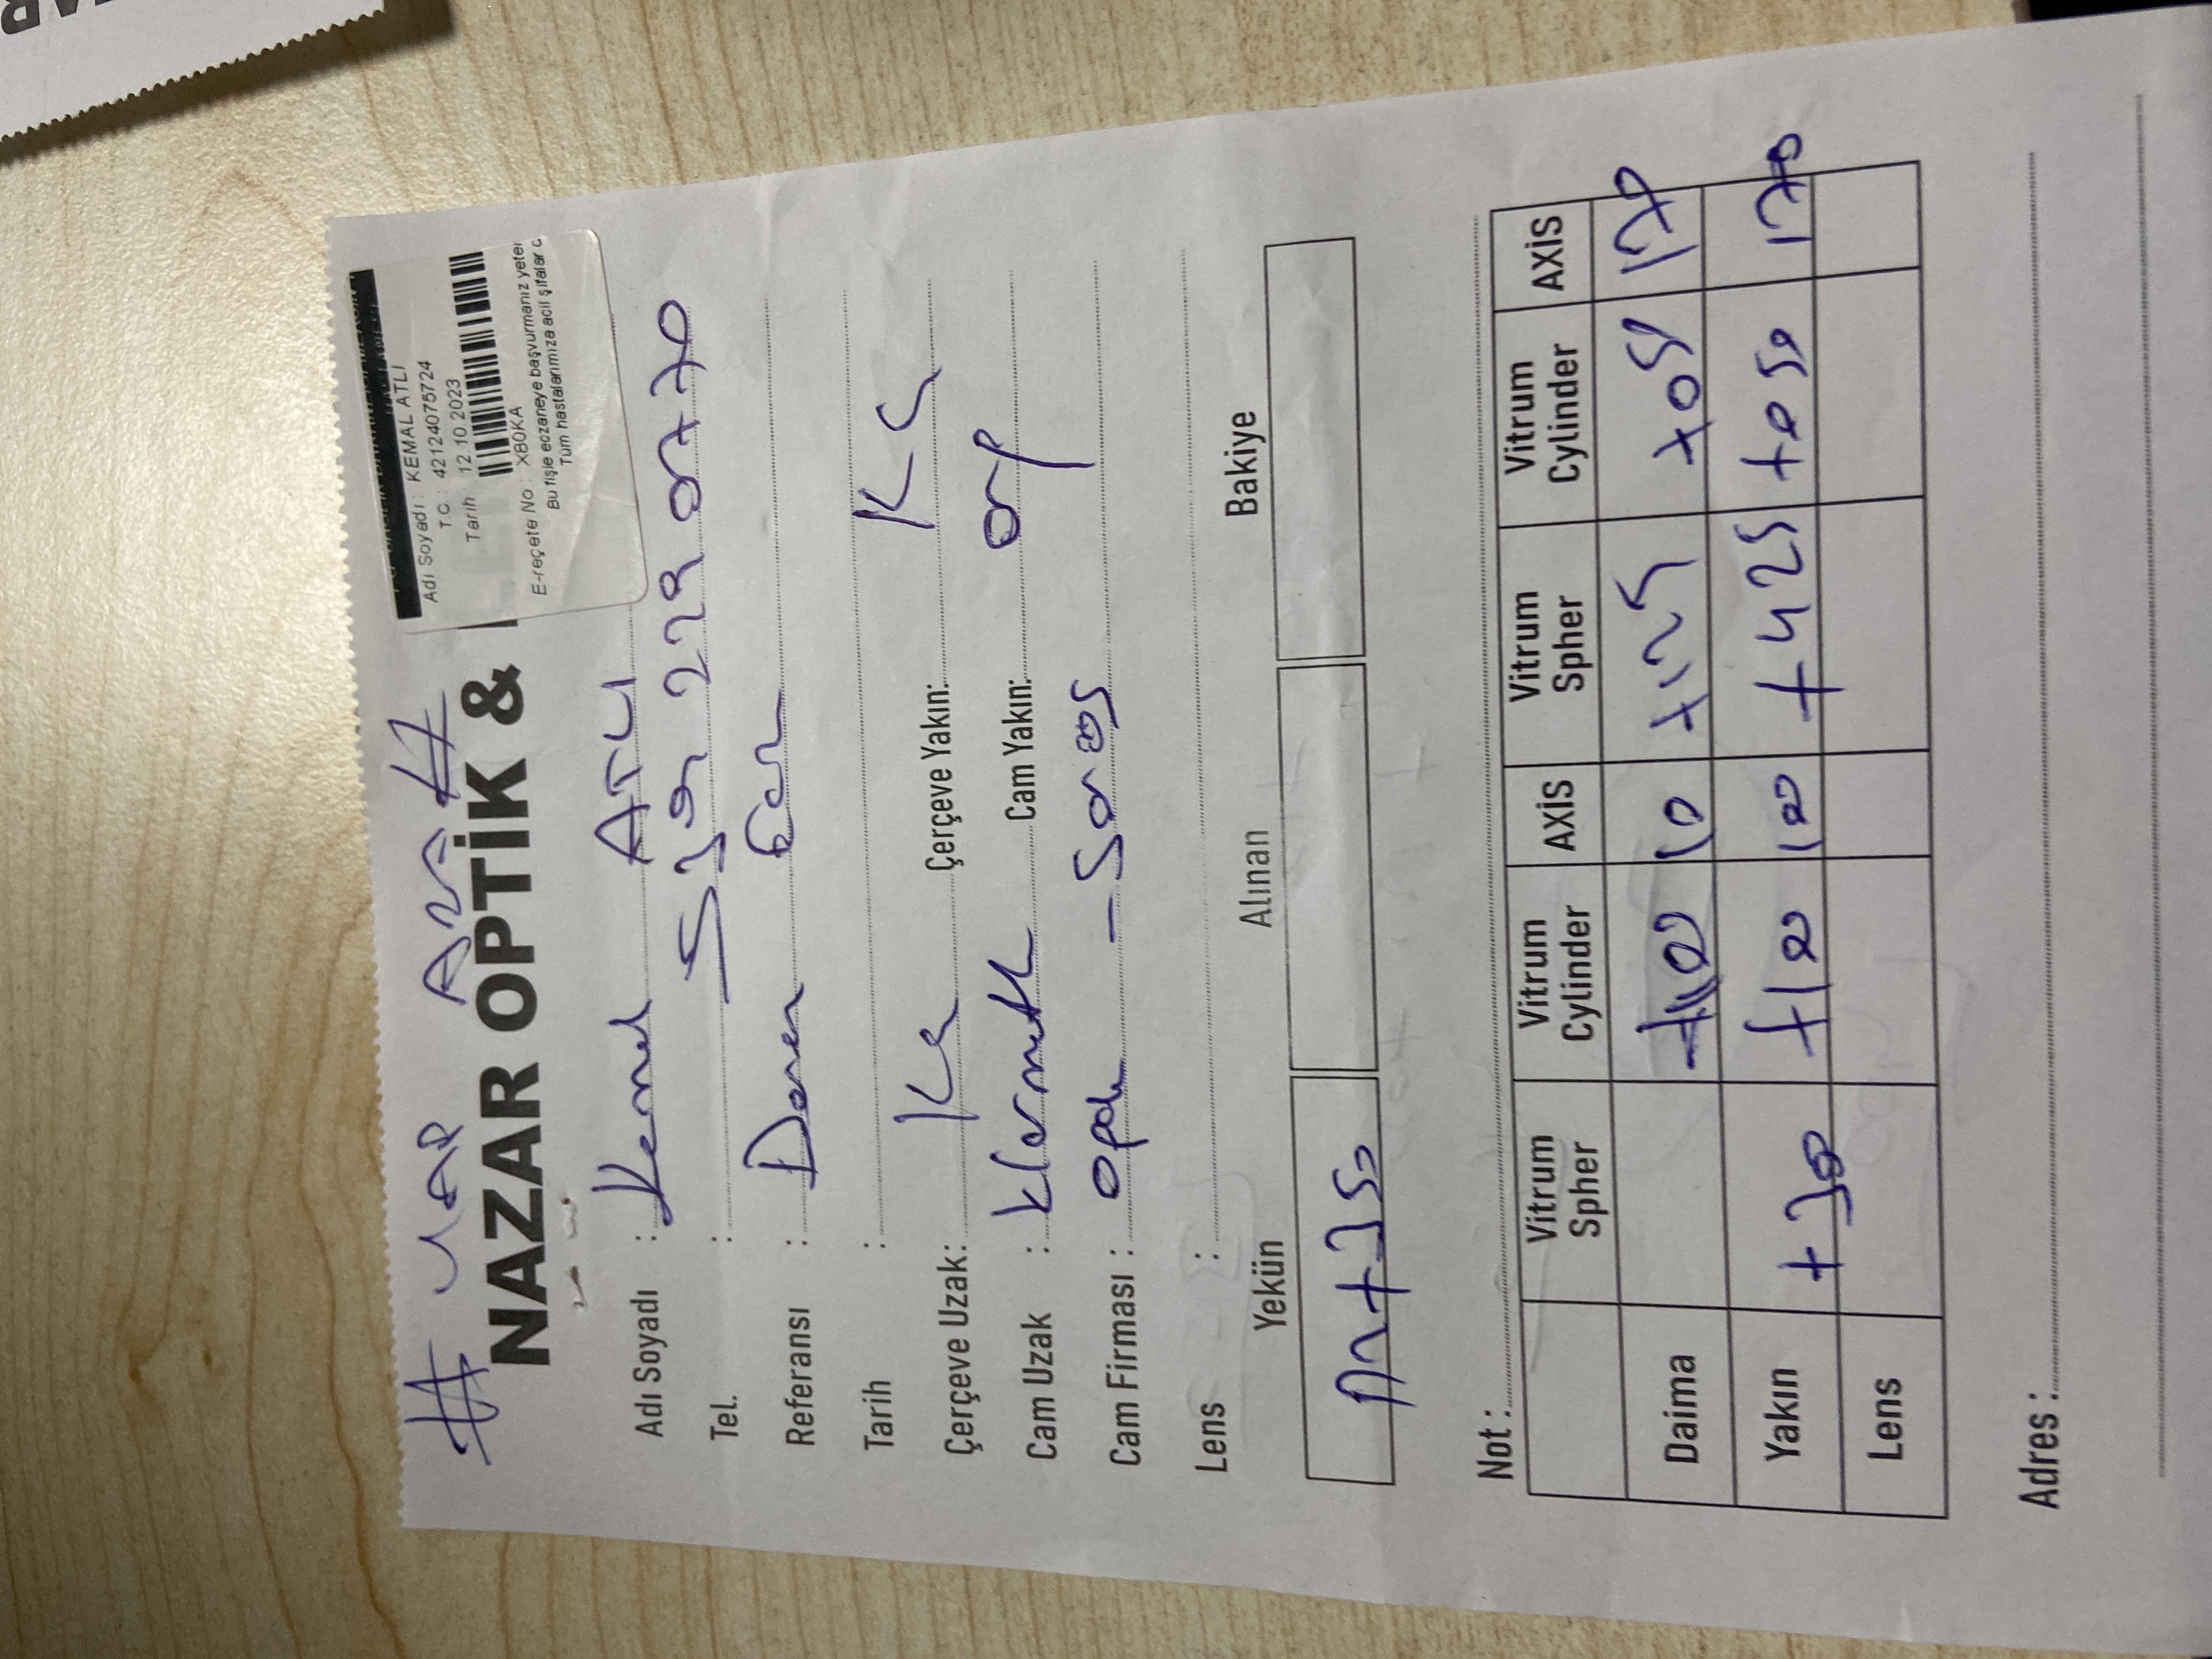 # YAP ARA #
NAZAR OPTİK &
Adı Soyadı : KEMAL ATLI
T.C. : 42124075724
Tarih 12.10.2023
E-reçete No : X80KA
Bu fişle eczaneye başvurmanız yeter
Tüm hastalarımıza acil şifalar d
Adı Soyadı : Kemal ATLI
Tel. : 539 229 0770
Referansı :
Tarih :
Çerçeve Uzak: KÇ Çerçeve Yakın: KÇ
Cam Uzak : Cam Yakın: org
Cam Firması : opak
Lens :
Yekün Alınan Bakiye
+350
Not :
Vitrum Spher Vitrum Cylinder AXİS Vitrum Spher Vitrum Cylinder AXİS
Daima +100 10 +125 +050 170
Yakın +300 +100 100 +425 +050 170
Lens
Adres :